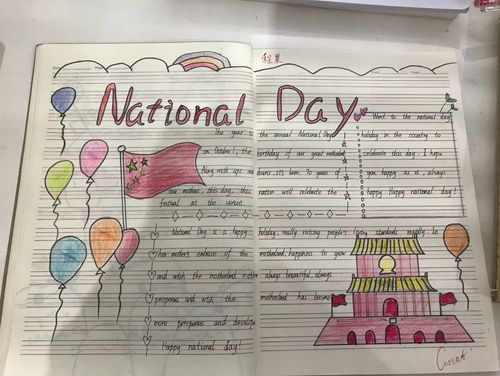 程果
National Day
The year
the annual National Day
on October 1, the
birthday of our great motherland
Along with ups and
downs, it's been 70 years of
our mothers, this day, this
nation will celebrate the
festival at the venue.
Went to the national day
holiday in the country to
celebrate this day. I hope
you happy as is, always
happy Happy national day!
National Day is a happy holiday, really raising people's living standards. in
her mother's embrace of the motherland, happiness to grow
and wish the motherland always beautiful, always
prosperous and wish the motherland has become
more prosperous and
Happy national day!
Great